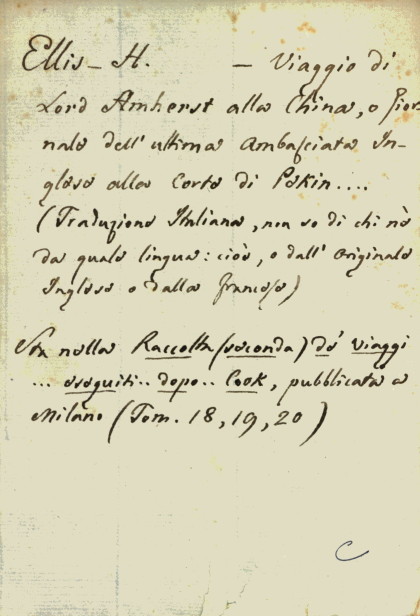 Ellis - H. — Viaggio di
Lord Amherst alla China, o Gior-
nale dell' ultima Ambasciata In-
glese alla Corte di Pekin....
(Traduzione Italiana, non so di chi nè
da quale lingua: cioè, o dall' originale
Inglese o dalla francese)
Sta nella Raccolta (seconda) de' viaggi
... eseguiti.. dopo.. Cook, pubblicata a
Milano (Tom. 18, 19, 20)
C